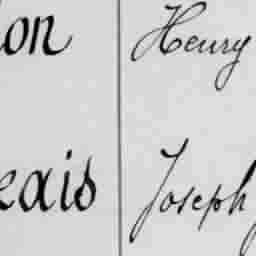 on Henry
eais Joseph